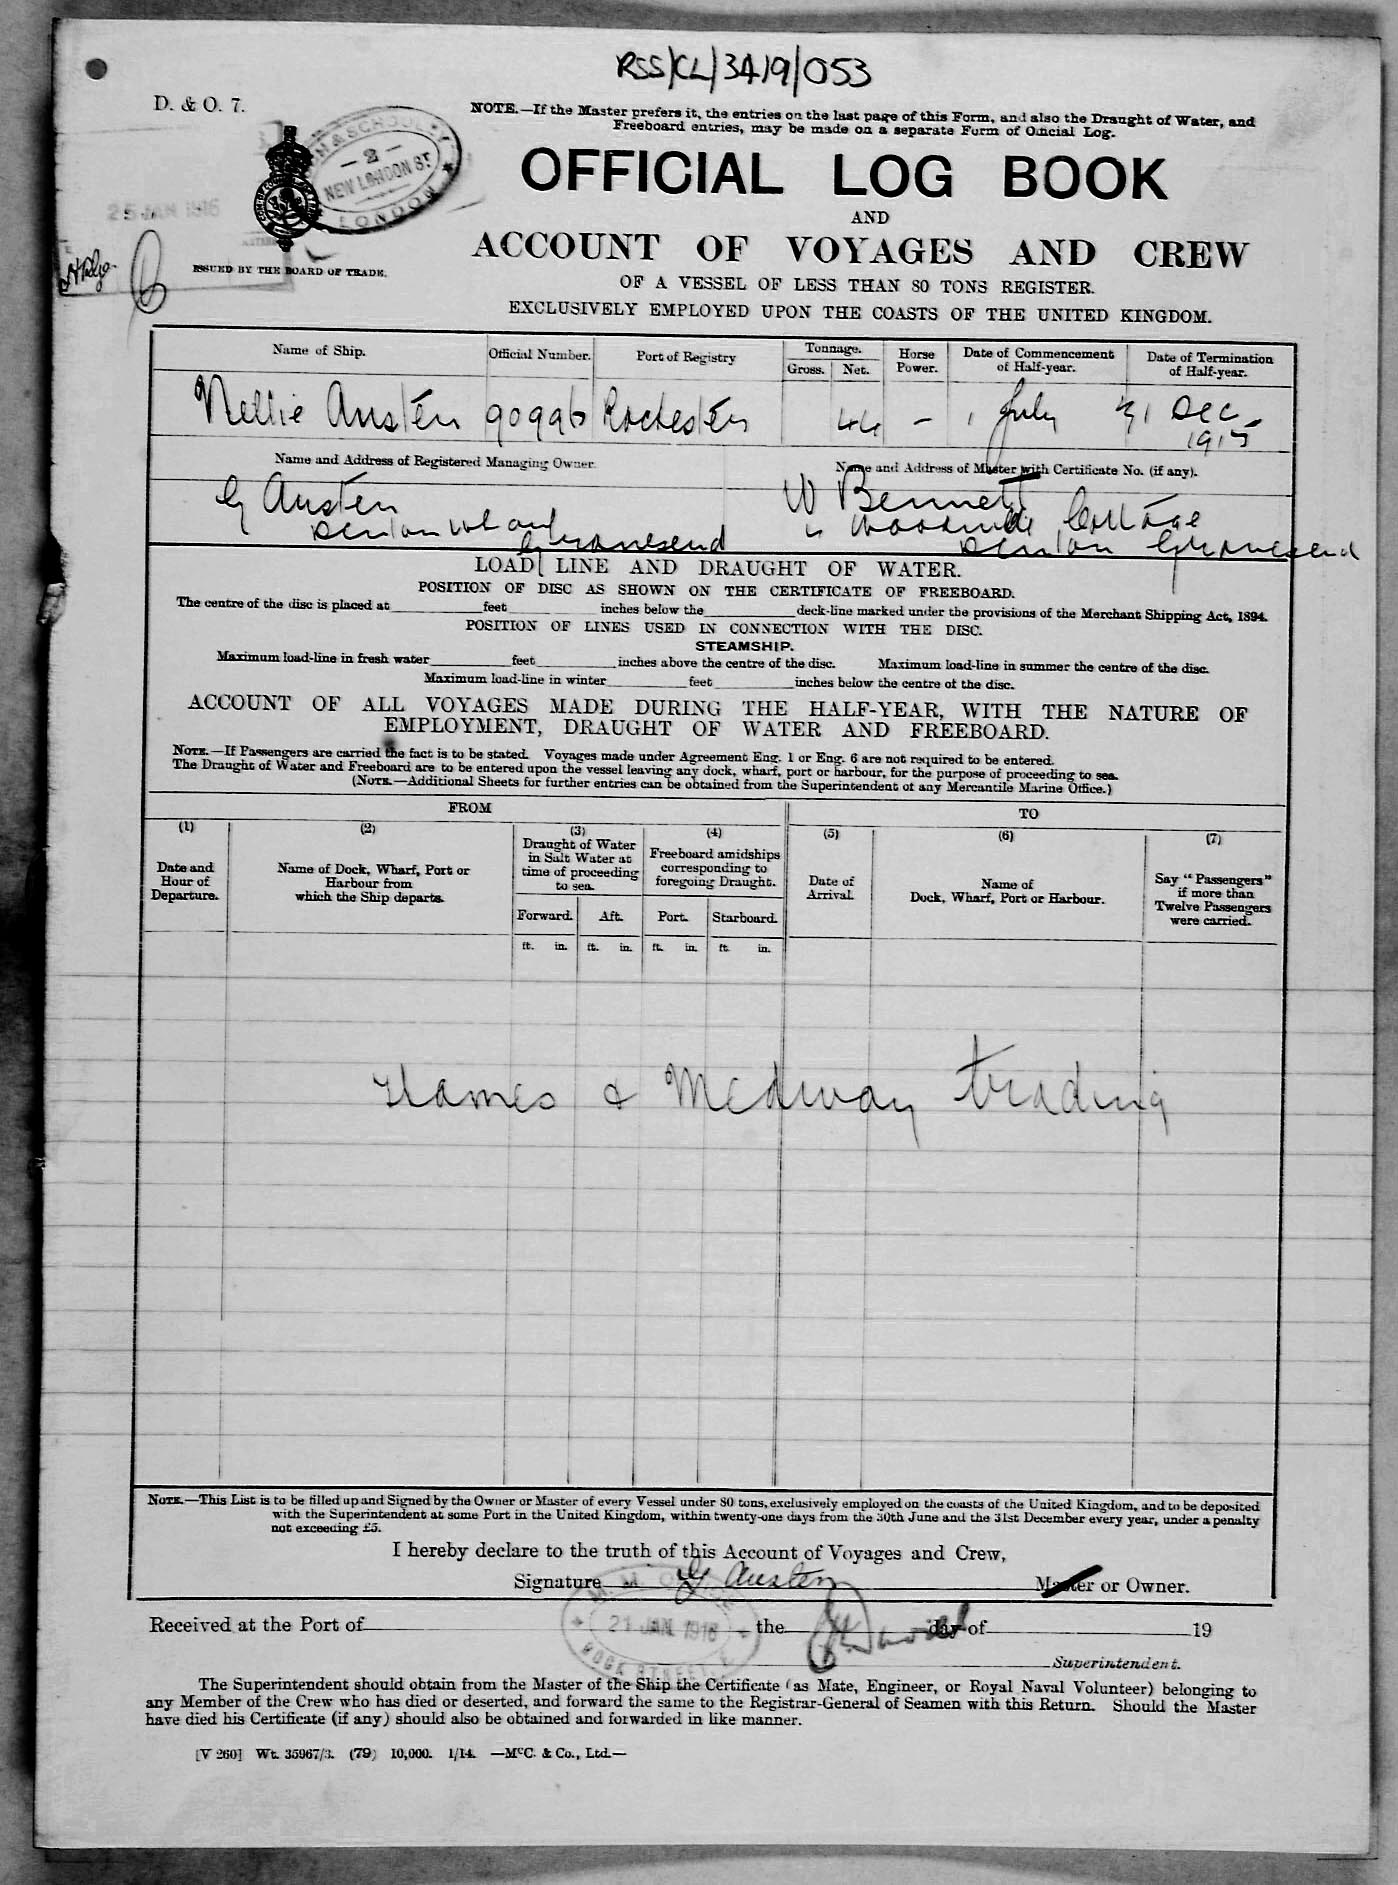 RSS/CL/3419/053
D. & O. 7.
NOTE.—If the Master prefers it, the entries on the last page of this Form, and also the Draught of Water, and
Freeboard entries, may be made on a separate Form of Official Log.
2
NEW LONDON ST.
LONDON
25 JAN 1916
OFFICIAL LOG BOOK
AND
ACCOUNT OF VOYAGES AND CREW
ISSUED BY THE BOARD OF TRADE.
OF A VESSEL OF LESS THAN 80 TONS REGISTER.
EXCLUSIVELY EMPLOYED UPON THE COASTS OF THE UNITED KINGDOM.
Name of Ship. Official Number. Port of Registry Tonnage. Gross. Net. Horse Power. Date of Commencement of Half-year. Date of Termination of Half-year.
Nellie Austen 90996 Rochester 44 – 1 July 31 Dec 1915
Name and Address of Registered Managing Owner. Name and Address of Master with Certificate No. (if any).
G Austen W Bennett
Denton Wharf Cottage
Gravesend Denton Gravesend
LOAD LINE AND DRAUGHT OF WATER.
POSITION OF DISC AS SHOWN ON THE CERTIFICATE OF FREEBOARD.
The centre of the disc is placed at feet inches below the deck-line marked under the provisions of the Merchant Shipping Act, 1894.
POSITION OF LINES USED IN CONNECTION WITH THE DISC.
STEAMSHIP.
Maximum load-line in fresh water feet inches above the centre of the disc. Maximum load-line in summer the centre of the disc.
Maximum load-line in winter feet inches below the centre of the disc.
ACCOUNT OF ALL VOYAGES MADE DURING THE HALF-YEAR, WITH THE NATURE OF
EMPLOYMENT, DRAUGHT OF WATER AND FREEBOARD.
NOTE.—If Passengers are carried the fact is to be stated. Voyages made under Agreement Eng. 1 or Eng. 6 are not required to be entered.
The Draught of Water and Freeboard are to be entered upon the vessel leaving any dock, wharf, port or harbour, for the purpose of proceeding to sea.
(NOTE.—Additional Sheets for further entries can be obtained from the Superintendent of any Mercantile Marine Office.)
FROM TO
(1) (2) (3) (4) (5) (6) (7)
Date and Hour of Departure. Name of Dock, Wharf, Port or Harbour from which the Ship departs. Draught of Water in Salt Water at time of proceeding to sea. Freeboard amidships corresponding to foregoing Draught. Date of Arrival. Name of Dock, Wharf, Port or Harbour. Say "Passengers" if more than Twelve Passengers were carried.
Forward. Aft. Port. Starboard.
ft. in. ft. in. ft. in. ft. in.
Thames & Medway trading
NOTE.—This List is to be filled up and Signed by the Owner or Master of every Vessel under 80 tons, exclusively employed on the coasts of the United Kingdom, and to be deposited
with the Superintendent at some Port in the United Kingdom, within twenty-one days from the 30th June and the 31st December every year, under a penalty
not exceeding £5.
I hereby declare to the truth of this Account of Voyages and Crew,
Signature G Austen Master or Owner.
Received at the Port of the day of 19
21 JAN 1916
Superintendent.
The Superintendent should obtain from the Master of the Ship the Certificate (as Mate, Engineer, or Royal Naval Volunteer) belonging to
any Member of the Crew who has died or deserted, and forward the same to the Registrar-General of Seamen with this Return. Should the Master
have died his Certificate (if any) should also be obtained and forwarded in like manner.
[V 260] Wt. 35967/3. (79) 10,000. 1/14. —McC. & Co., Ltd.—